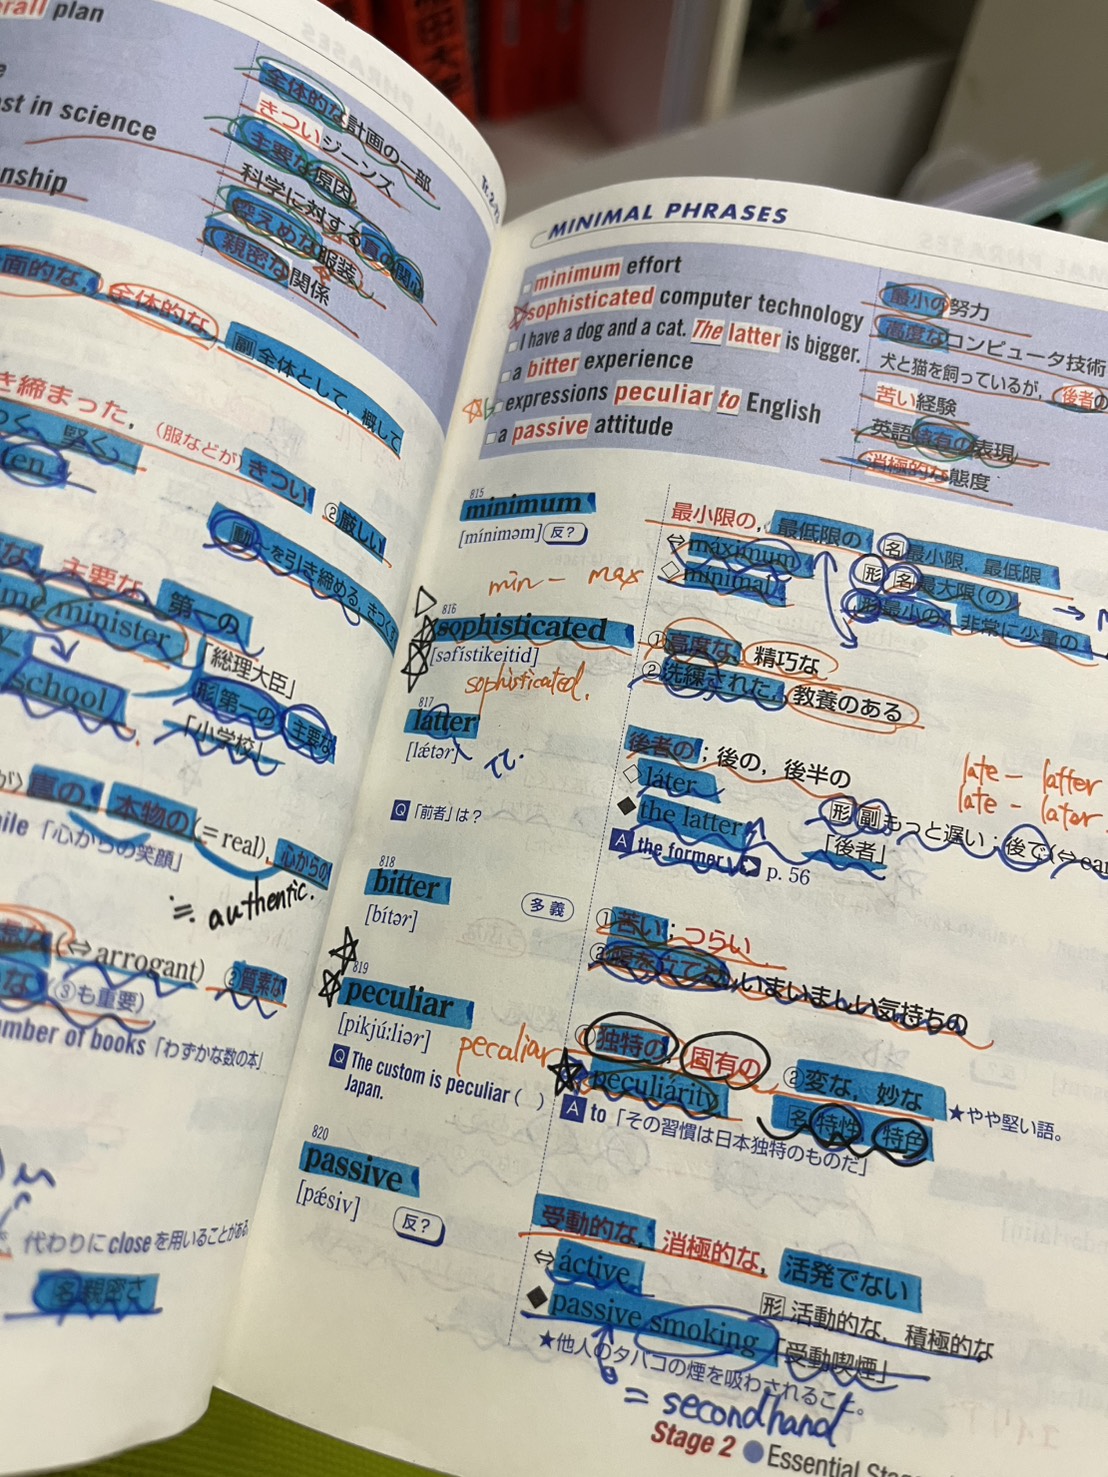 erall plan
全体的な計画の一部
きついジーンズ
主要な原因
st in science
科学に対する真の関心
控えめな服装
nship
親密な関係
面的な, 全体的な, 副 全体として, 概して
き締まった, (服などが)きつい ②厳しい
つく, 堅く 動 ~を引き締める, きつくする
主要な, 第一の
me minister 「総理大臣」
形 第一の, 主要な
school 「小学校」
真の, 本物の (= real), 心からの
ile 「心からの笑顔」
≒. authentic.
(⇔ arrogant) ②質素な
(③も重要)
mber of books 「わずかな数の本」
代わりに close を用いることがある。
名 親密さ
MINIMAL PHRASES
minimum effort 最小の努力
sophisticated computer technology 高度なコンピュータ技術
I have a dog and a cat. The latter is bigger. 犬と猫を飼っているが, 後者の
a bitter experience 苦い経験
expressions peculiar to English 英語特有の表現
a passive attitude 消極的な態度
815
minimum 最小限の, 最低限の 名 最小限, 最低限
[mínimәm] 反? ⇔ máximum 形 名 最大限(の)
◇ minimal 形 最小の, 非常に少量の
min - max
816
sophisticated ①高度な, 精巧な
[sәfístikeitid] ②洗練された, 教養のある
sophisticated.
817
latter 後者の ; 後の, 後半の
[lǽtәr] ◇ láter 形 副 もっと遅い ; 後で (⇔ ear
late - latter
late - later
◆ the latter 「後者」
Q 「前者」は? A the former ▶ p. 56
818
bitter 多義 ①苦い ; つらい
[bítәr] ②腹を立てた, いまいましい気持ちの
819
peculiar ①独特の, 固有の ②変な, 妙な ★やや堅い語。
[pikjúːliәr] peculiárity 名 特性, 特色
pecaliar
Q The custom is peculiar ( ) Japan. A to 「その習慣は日本独特のものだ」
820
passive 受動的な, 消極的な, 活発でない
[pǽsiv] 反? ⇔ áctive 形 活動的な, 積極的な
◆ passive smoking 「受動喫煙」
★他人のタバコの煙を吸わされること。
= secondhand
Stage 2 ● Essential Sta